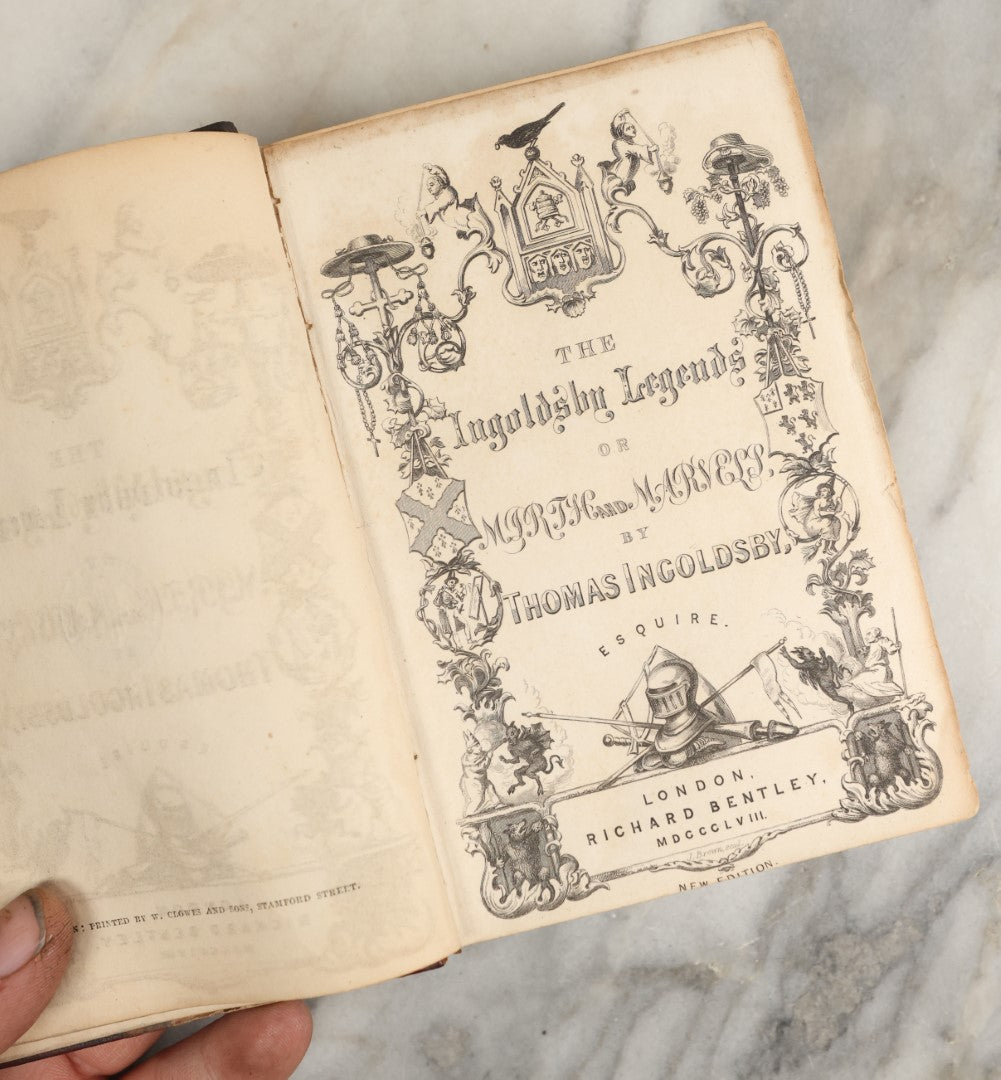 N: PRINTED BY W. CLOWES AND SONS, STAMFORD STREET.
THE
Ingoldsby Legends
OR
MIRTH AND MARVELS,
BY
THOMAS INGOLDSBY,
ESQUIRE.
LONDON,
RICHARD BENTLEY,
MDCCCLVIII.
J. Brown, 
NEW EDITION.